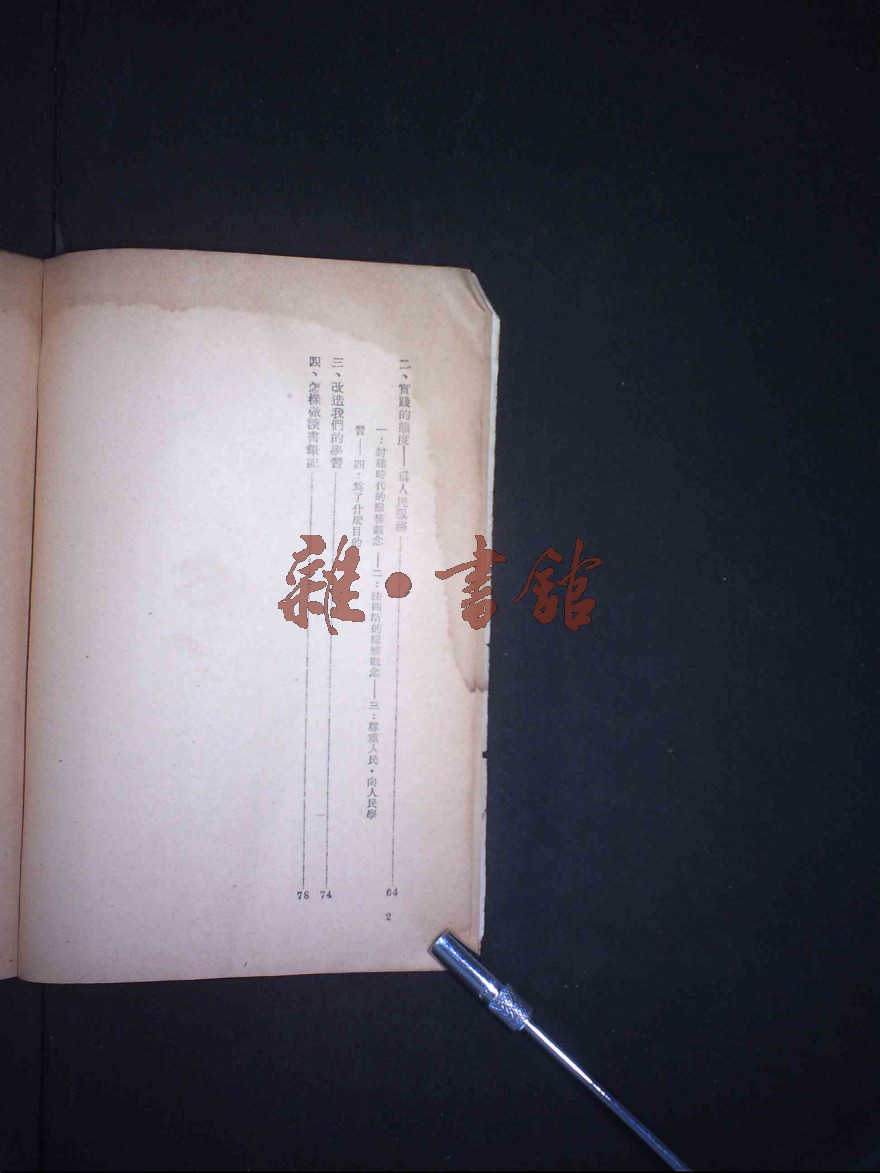 二、實踐的態度——爲人民服務……64
一：封建時代的服務觀念——二：法西斯的服務觀念——三：尊重人民・向人民學
習——四・爲了什麼目的
三、改造我們的學習……74
四、怎樣做讀書筆記……78
2
雜・書館